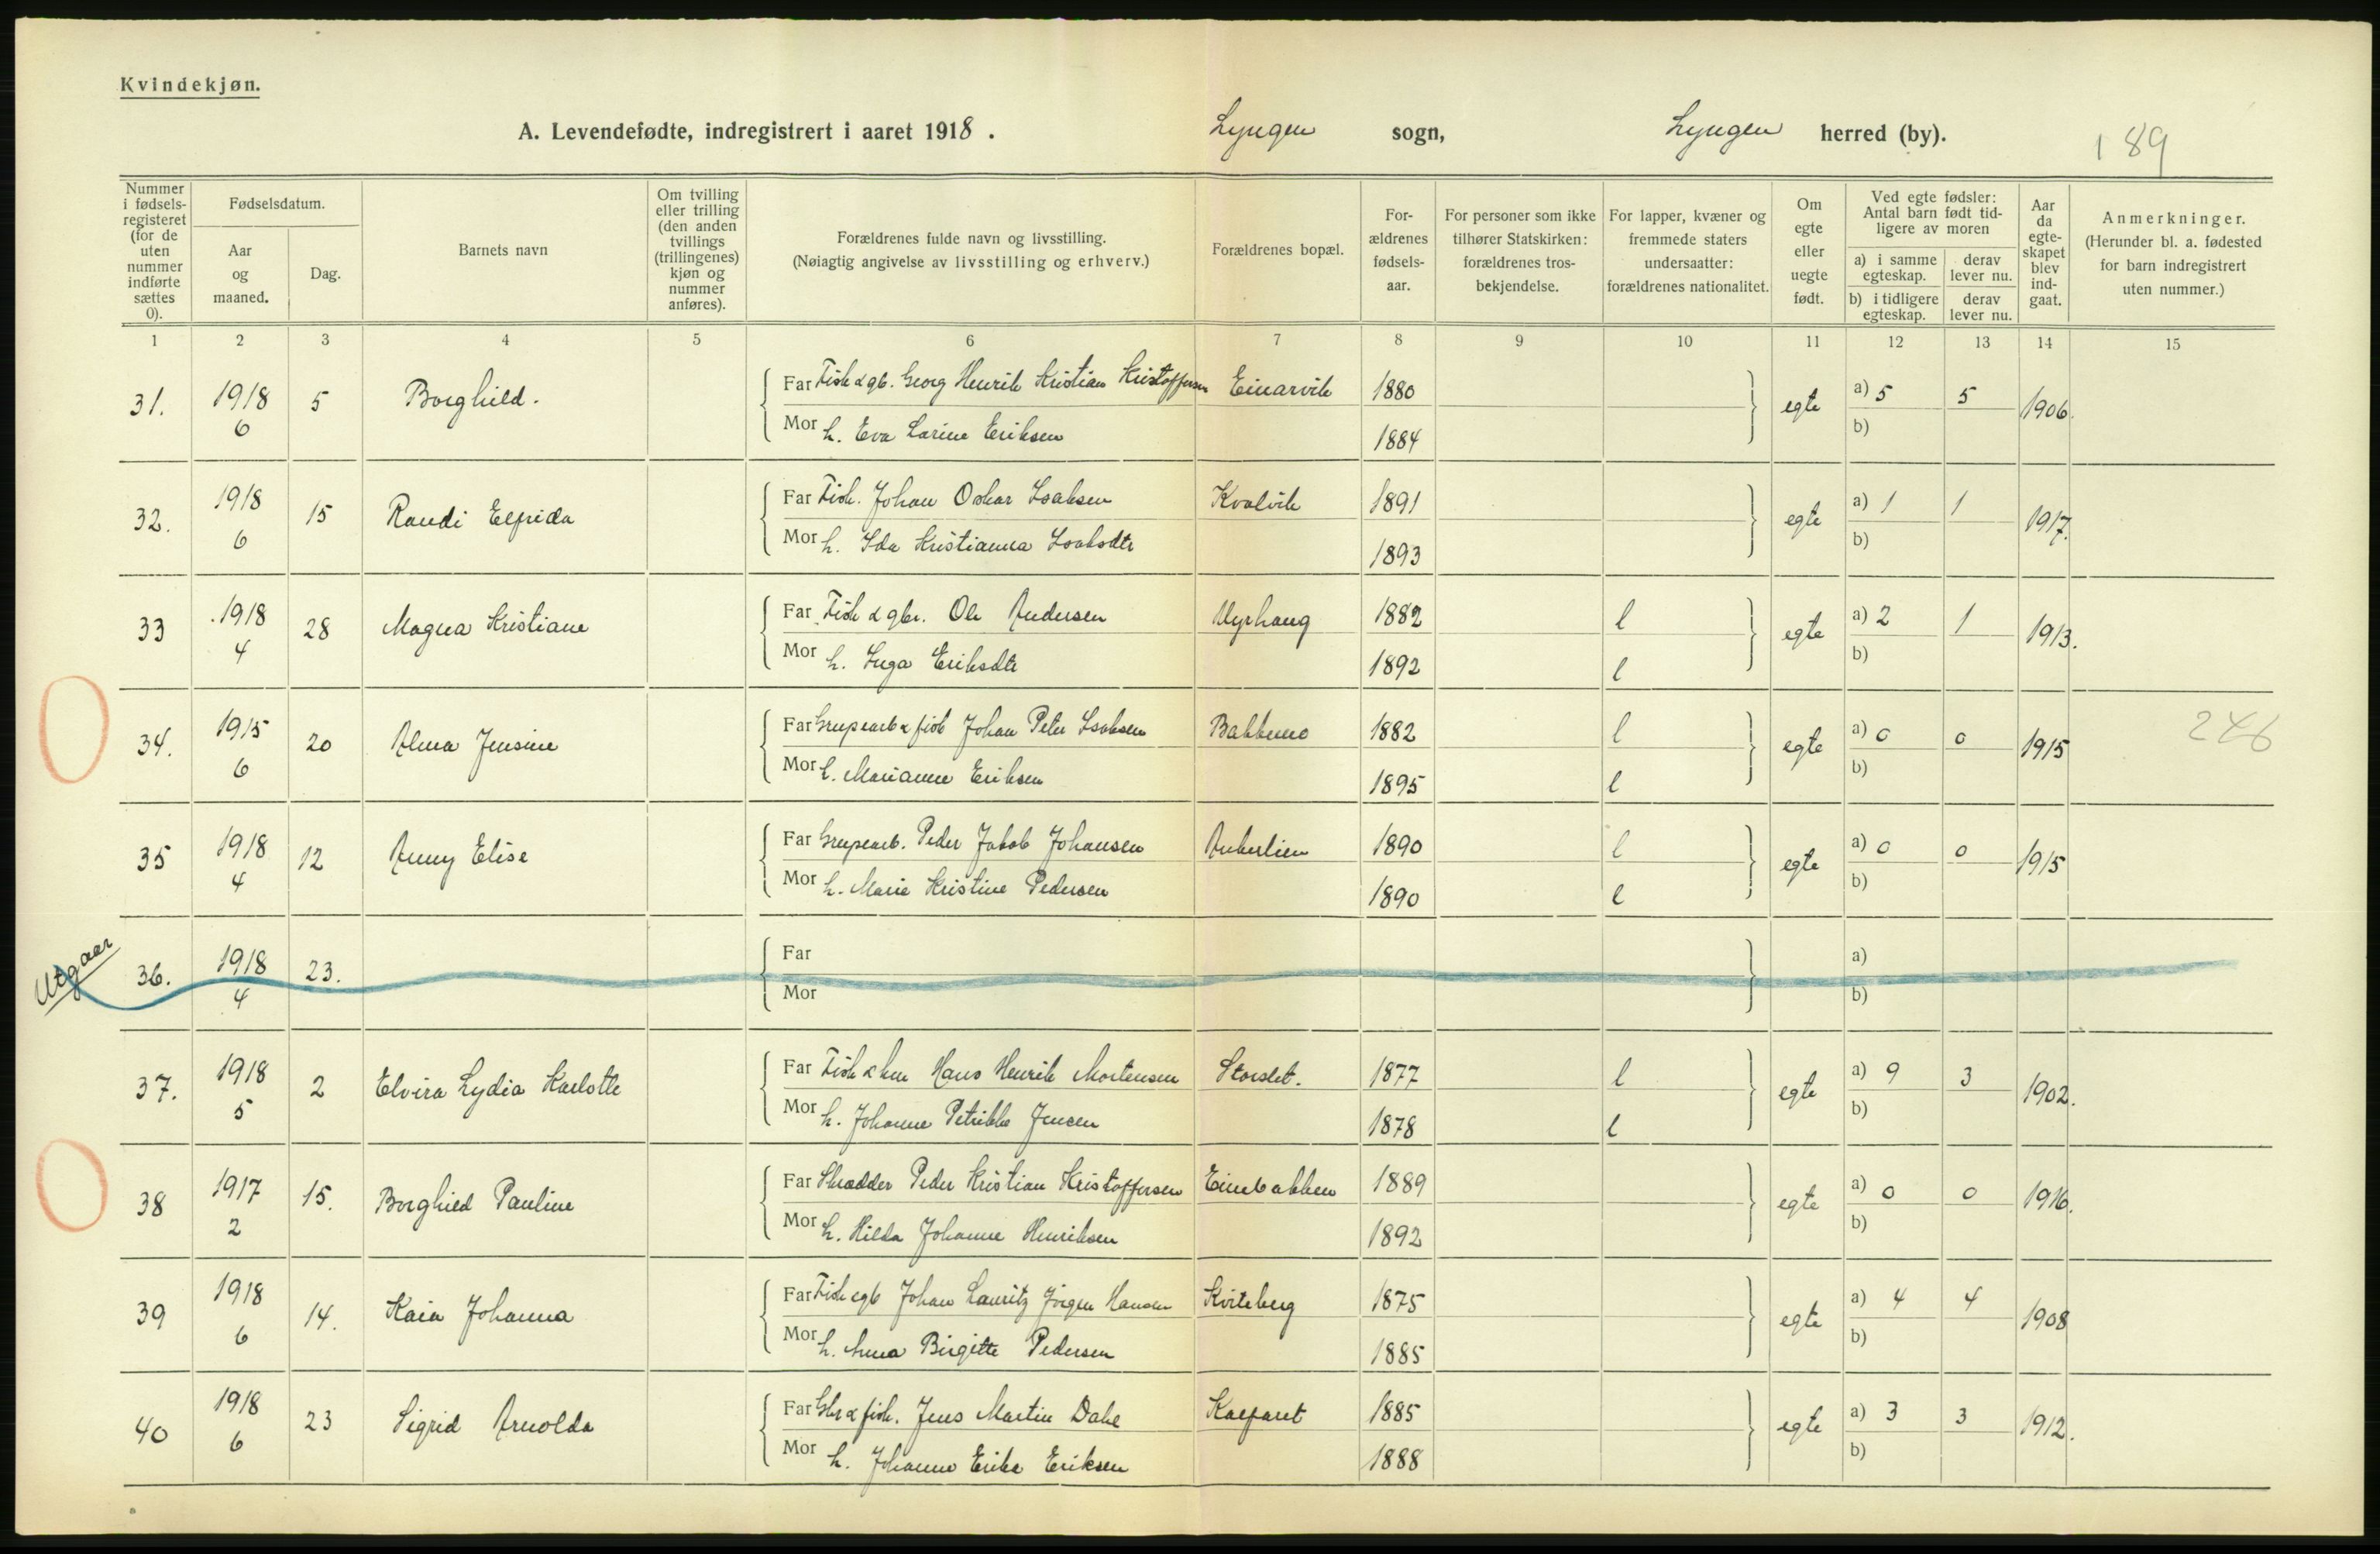 Kvindekjøn.
A. Levendefødte, indregistrert i aaret 1918. Lyngen sogn, Lyngen herred (by).
189
Nummer i fødsels-registeret (for de uten nummer indførte sættes 0).
Fødselsdatum.
Aar og maaned.
Dag.
Barnets navn
Om tvilling eller trilling (den anden tvillings (trillingenes) kjøn og nummer anføres).
Forældrenes fulde navn og livsstilling.
(Nøiagtig angivelse av livsstilling og erhverv.)
Forældrenes bopæl.
For-ældrenes fødsels-aar.
For personer som ikke tilhører Statskirken: forældrenes tros-bekjendelse.
For lapper, kvæner og fremmede staters undersaatter: forældrenes nationalitet.
Om egte eller uegte født.
Ved egte fødsler: Antal barn født tid-ligere av moren
a) i samme egteskap. derav lever nu.
b) i tidligere egteskap. derav lever nu.
Aar da egte-skapet blev ind-gaat.
Anmerkninger.
(Herunder bl. a. fødested for barn indregistrert uten nummer.)
1 2 3 4 5 6 7 8 9 10 11 12 13 14 15
31. 1918 6 5 Borghild. Far Fisk & gb. Georg Henrik Kristian Kristoffersen Einarvik 1880 egte a) 5 5 1906.
Mor h. Eva Larine Eriksen 1884 b)
32. 1918 6 15 Randi Elfrida Far Fisk. Johan Oskar Isaksen Kvalvik 1891 egte a) 1 1 1917.
Mor h. Ida Kristianna Isaksdtr 1893 b)
33 1918 4 28 Magna Kristiane Far Fisk & gbr. Ole Andersen Myrhaug 1882 l egte a) 2 1 1913.
Mor h. Inga Eriksdtr 1892 l b)
34. 1915 6 20 Alma Jensine Far Grupearb & fisk Johan Peter Isaksen Bakkemo 1882 l egte a) 0 0 1915 246
Mor h. Marianne Eriksen 1895 l b)
35 1918 4 12 Anny Elise Far Grupearb. Peder Jakob Johansen Ankerlien 1890 l egte a) 0 0 1915
Mor h. Marie Kristine Pedersen 1890 l b)
Utgaar 36. 1918 4 23. Far a)
Mor b)
37. 1918 5 2 Elvira Lydia Karlotte Far Fisk & Hans Henrik Mortensen Storslet. 1877 l egte a) 9 3 1902.
Mor h. Johanne Petrikke Jensen 1878 l b)
38 1917 2 15. Borghild Pauline Far Skrædder Peder Kristian Kristoffersen Einebakken 1889 egte a) 0 0 1916.
Mor h. Hilda Johanne Henriksen 1892 b)
39 1918 6 14. Kaia Johanna Far Fisk & gb Johan Lauritz Jørgen Hansen Kviteberg 1875 egte a) 4 4 1908
Mor h. Anna Birgitte Pedersen 1885 b)
40 1918 6 23 Sigrid Arnolda Far Gbr & fisk. Jens Martin Dahl Kalfaret 1885 egte a) 3 3 1912.
Mor h. Johanne Erika Eriksen 1888 b)